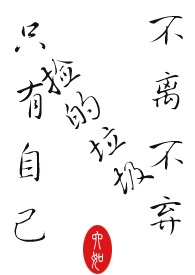 只有自己
捡的垃圾
不离不弃